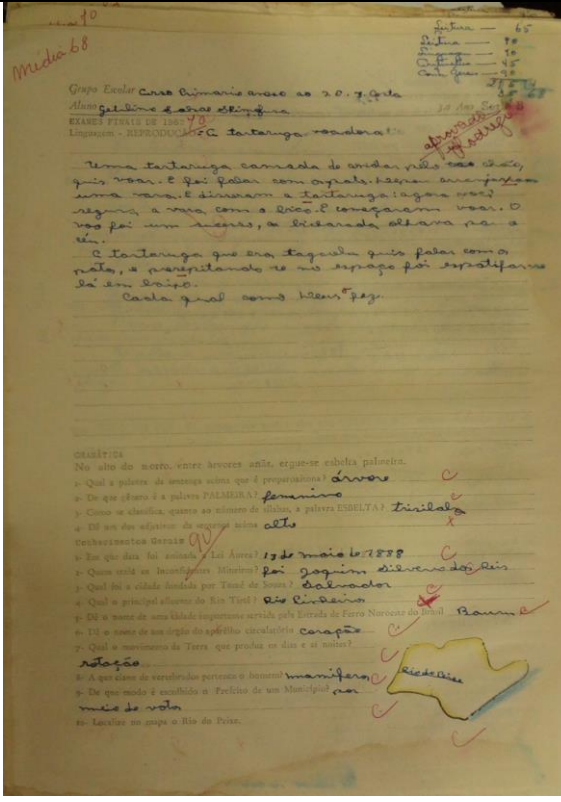 Média 68
Leitura — 65
Aprovado
Grupo Escolar Curso Primario anexo ao
Aluno
EXAMES FINAIS DE 196 70
Linguagem - REPRODUÇÃO: A tartaruga voadora
Uma tartaruga cansada de andar pelo chão,
quis voar. E foi falar com o pato.
uma vara. E disseram a tartaruga: agora você
segura a vara com o bico. E começaram voar. O
voo foi um sucesso, a bicharada olhava para o
céu.
A tartaruga que era tagarela quis falar com o
pato, e no espaço foi
lá em baixo.
Cada qual como Deus o fez.
GRAMÁTICA
No alto do morro, entre árvores anãs, ergue-se esbelta palmeira.
1- Qual a palavra da sentença acima que é proparoxítona? árvore
2- De que gênero é a palavra PALMEIRA? feminino
3- Como se classifica, quanto ao número de sílabas, a palavra ESBELTA? trisilaba
4- Dê um dos adjetivos da sentença acima alto
Conhecimentos Gerais 90
1- Em que data foi assinada a Lei Áurea? 13 de maio de 1888
2- Quem traiu os Inconfidentes Mineiros? foi Joaquim Silverio dos Reis
3- Qual foi a cidade fundada por Tomé de Souza? Salvador
4- Qual o principal afluente do Rio Tietê? Rio Pinheiro
5- Dê o nome de uma cidade importante servida pela Estrada de Ferro Noroeste do Brasil Bauru
6- Dê o nome de um órgão do aparelho circulatório coração
7- Qual o movimento da Terra que produz os dias e as noites?
rotação
8- A que classe de vertebrados pertence o homem? mamiferos
9- De que modo é escolhido o Prefeito de um Município? por
meio de votos
10- Localize no mapa o Rio do Peixe.
Rio do Peixe